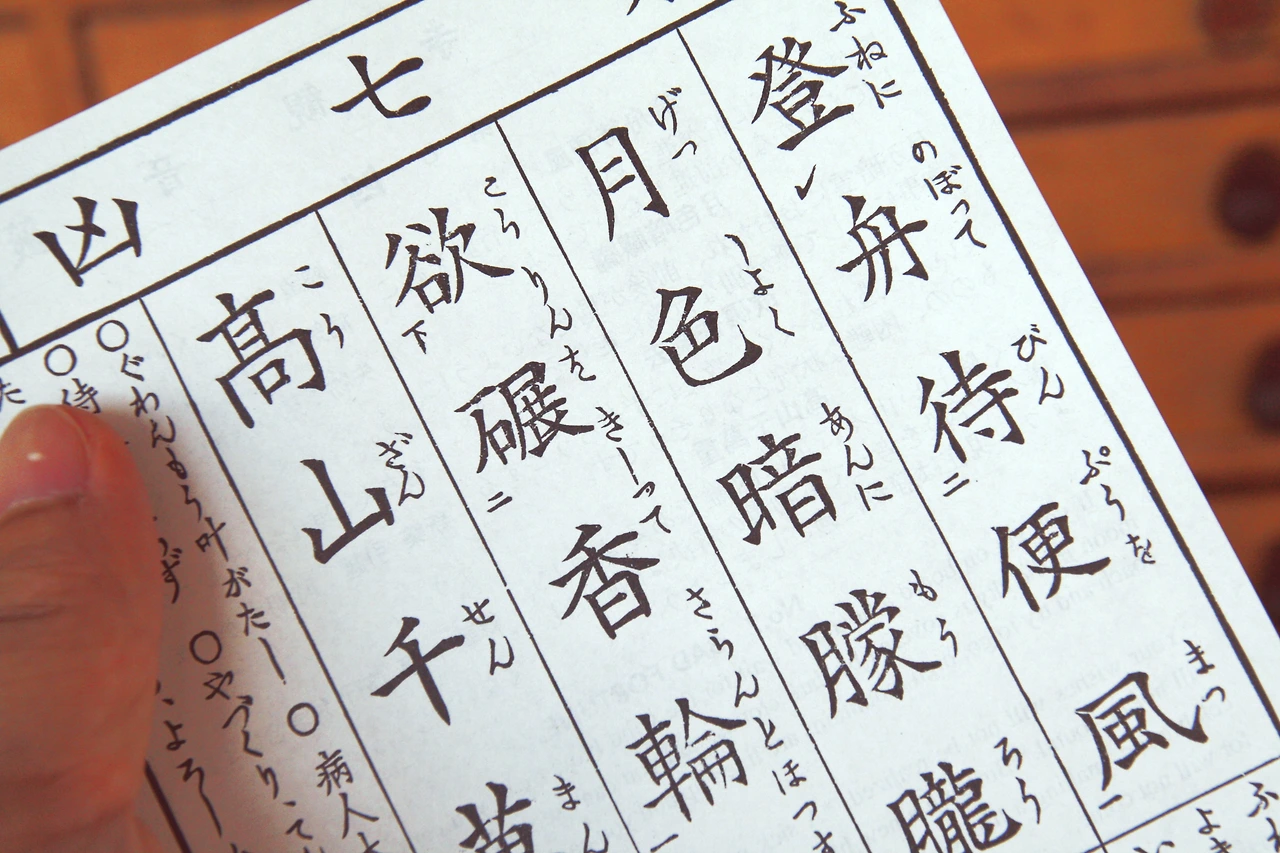 七
凶
ふねに のぼって びん ぷうを まつ
登レ舟侍二便風一
げつ しよく あんに もうろう
月色暗朦朧
こうりんを きしって さらんとほつす
欲下碾二香輪一
こう ざん せん まん
髙山千萬
○ぐわんもう叶がたし ○病人
○侍
○やづくり、
よろし